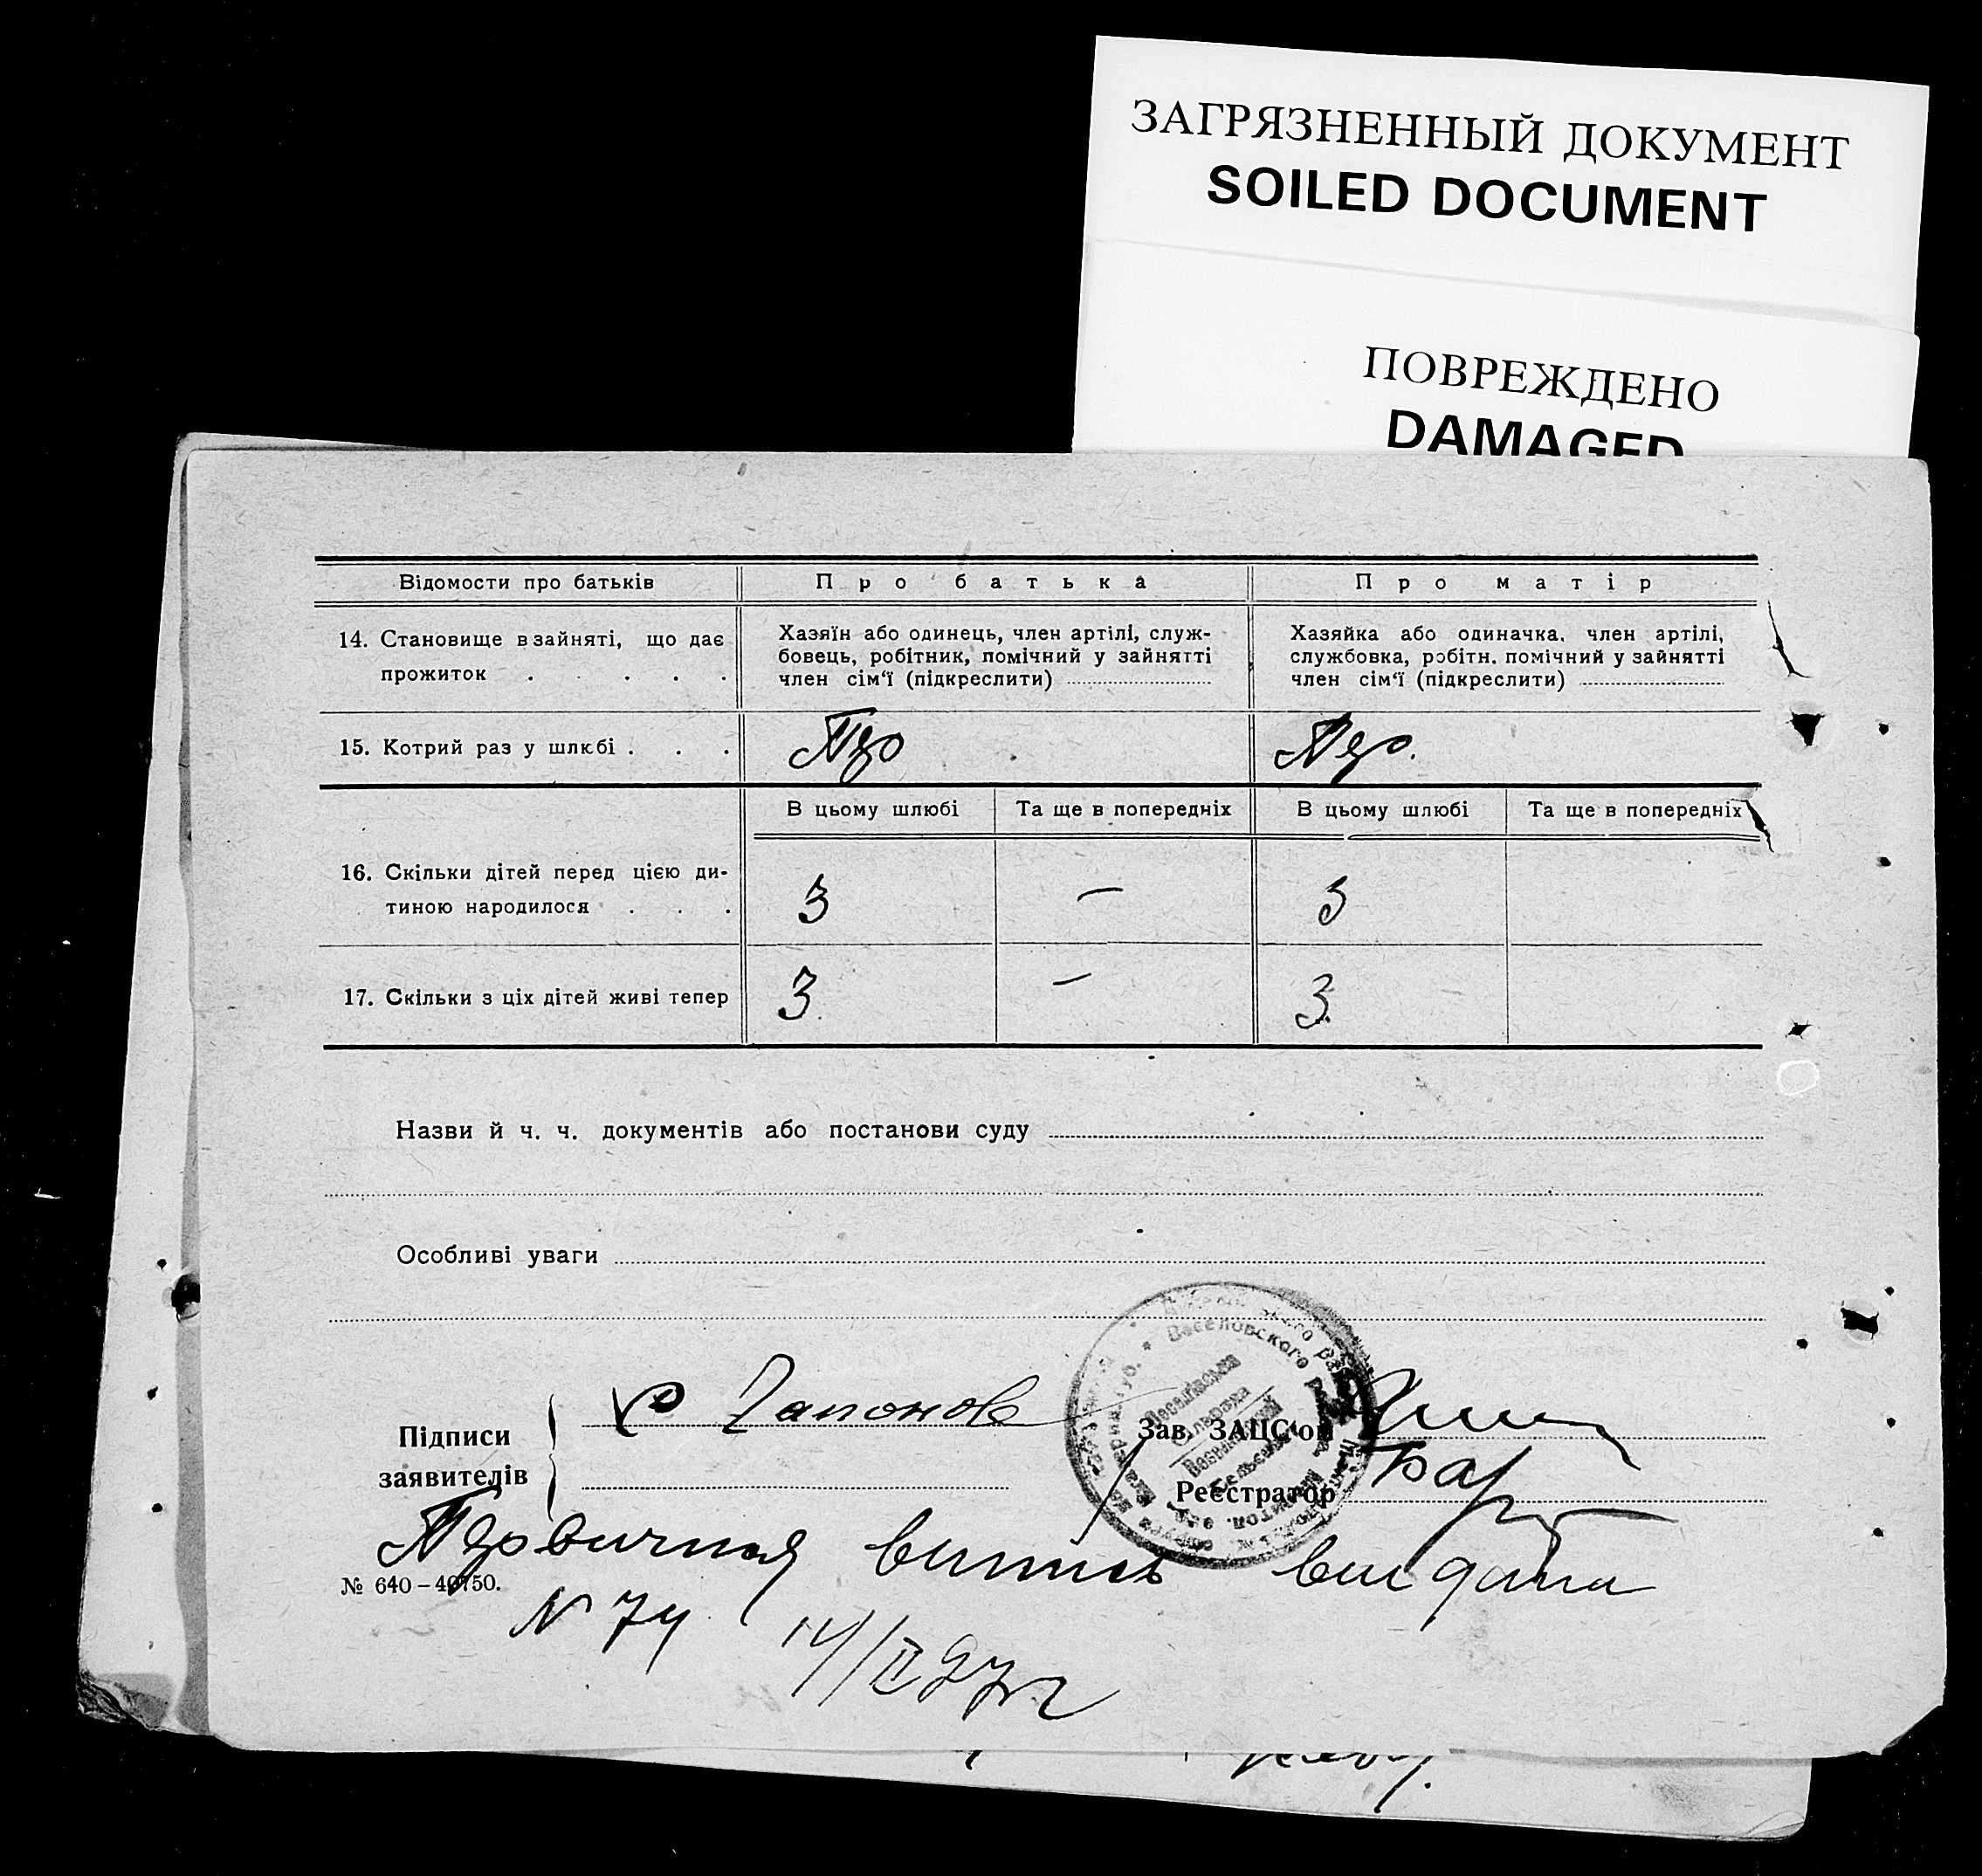 ЗАГРЯЗНЕННЫЙ ДОКУМЕНТ
SOILED DOCUMENT
ПОВРЕЖДЕНО
DAMAGED
Відомости про батьків
Про батька
Про матір
14. Становище в зайняті, що дає
прожиток . . . . .
Хазяїн або одинець, член артілі, служ-
бовець, робітник, помічний у зайнятті
член сім'ї (підкреслити)
Хазяйка або одиначка, член артілі,
службовка, робітн. помічний у зайнятті
член сім'ї (підкреслити)
15. Котрий раз у шлюбі . . .
В цьому шлюбі
Та ще в попередніх
В цьому шлюбі
Та ще в попередніх
16. Скільки дітей перед цією ди-
тиною народилося . . .
3 — 3
17. Скільки з ціх дітей живі тепер
3 — 3
Назви й ч. ч. документів або постанови суду
Особливі уваги
Підписи
заявителів
Гапонов
Веселовского
Зав. ЗАЦС'ом
Реєстратор
Первичная випись видана
№ 640 – 40750.
N 74 14/II 27 г